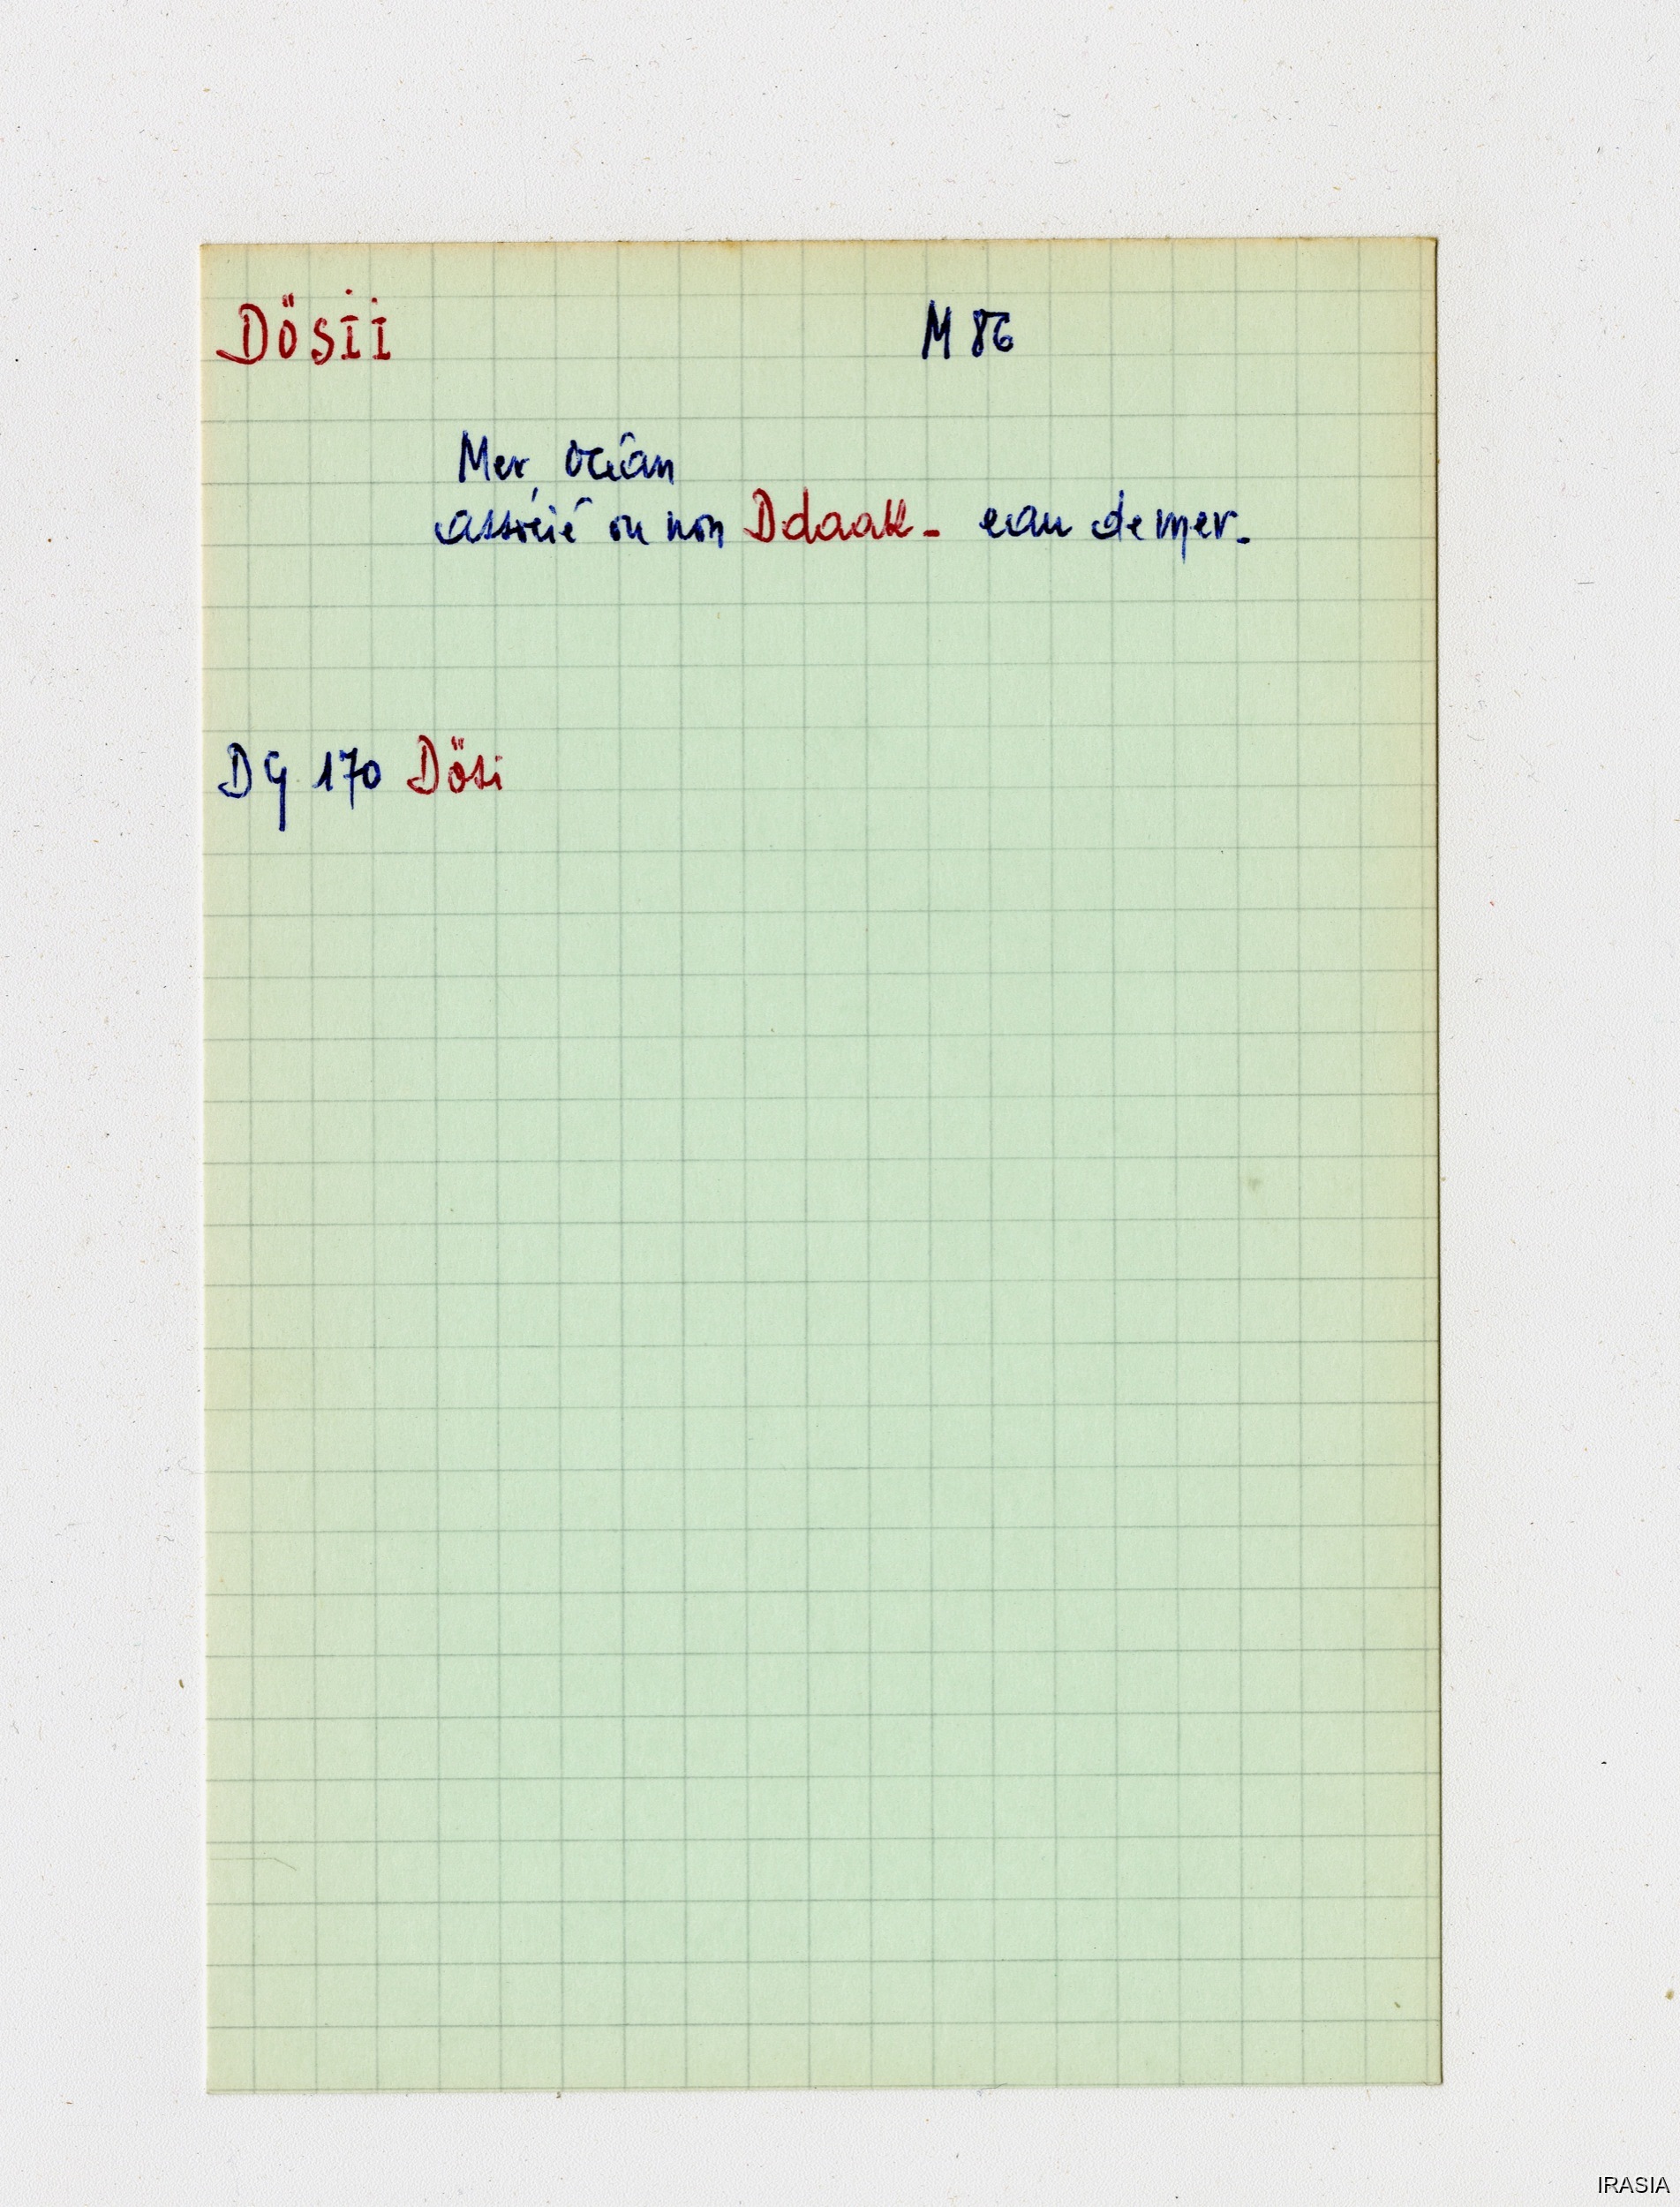 DÖSII M 86
Mer, océan
associé ou non Ddaak - eau de mer.
DG 170 Dösi
IRASIA